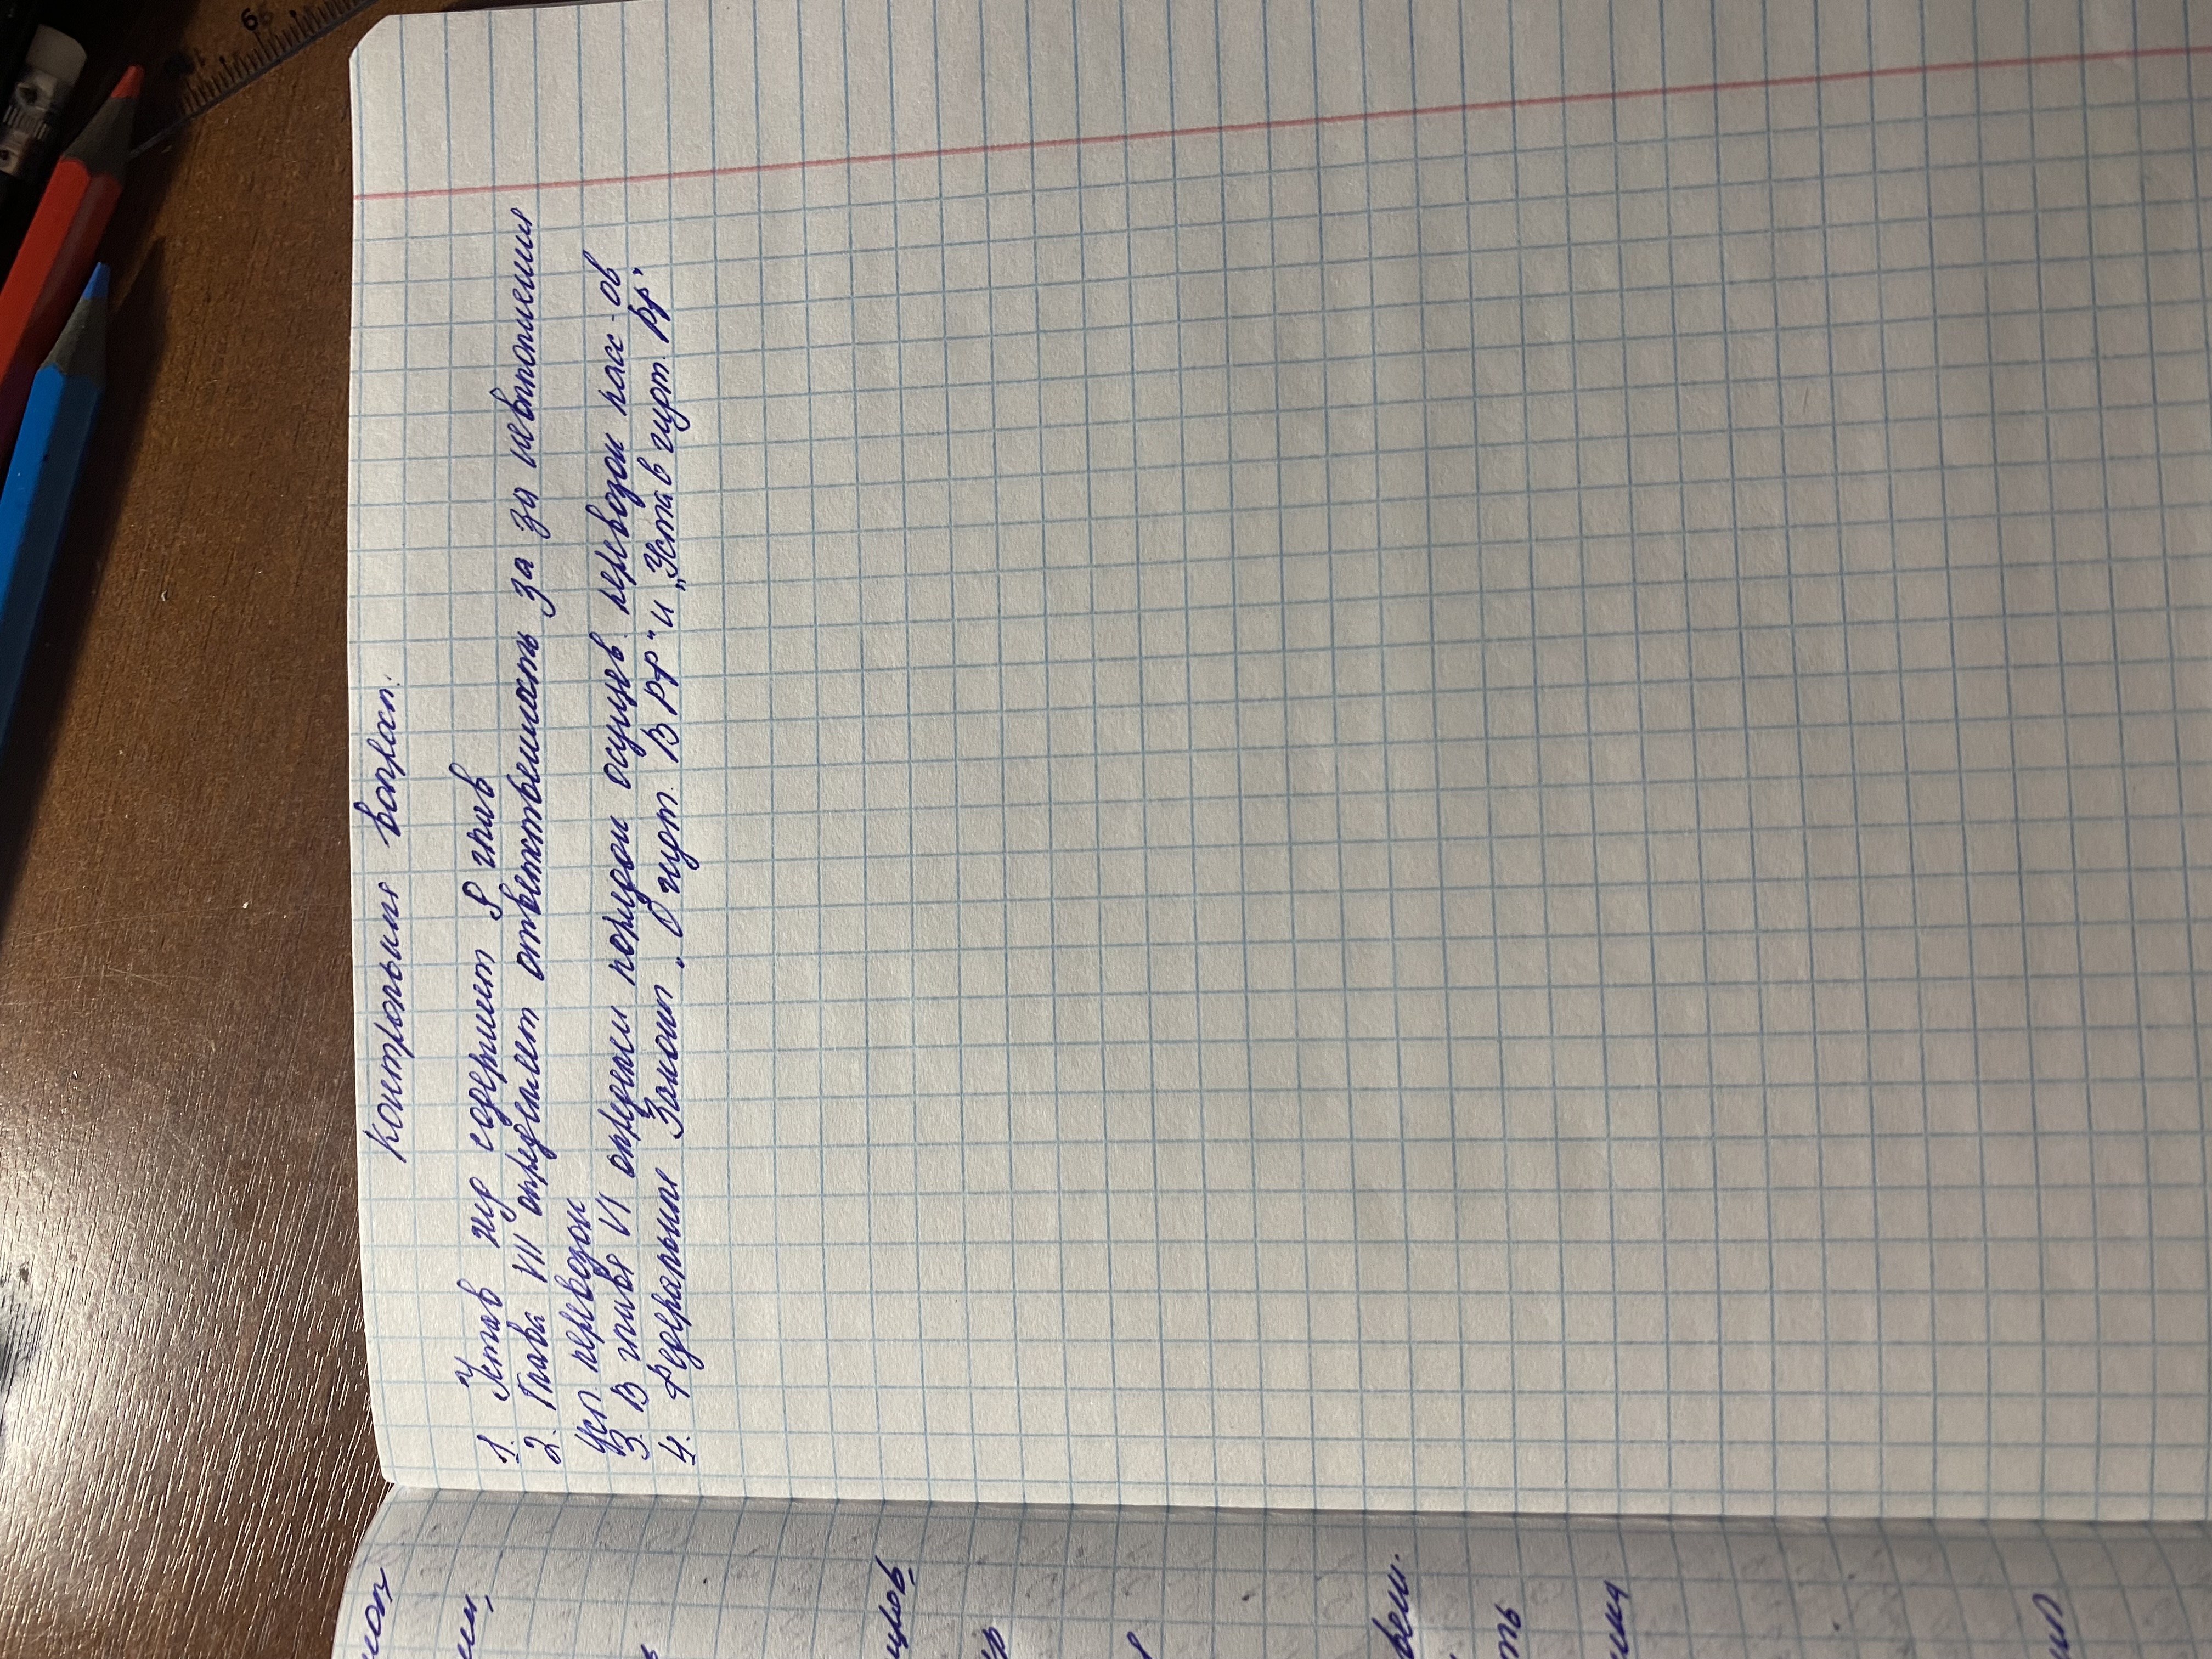 Контрольные вопросы.
1. Устав жд содержит 8 глав
2. Глава VII определяет ответственность за за невыполнения
усл перевозок
3. В главе VI определен порядок осущев. перевозок пасс-ов
4. Федеральные Законы „О ждт. В РФ" и „Устав ждт. РФ"
ть